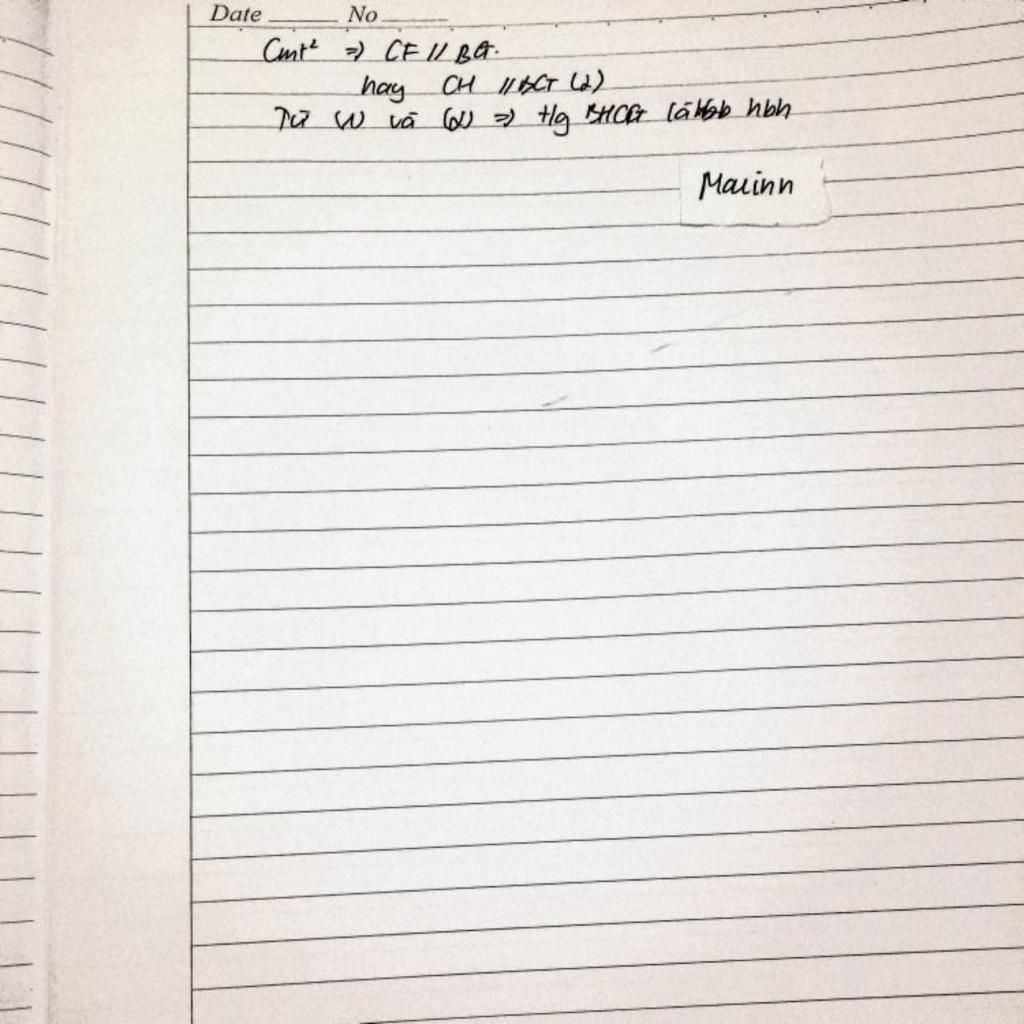 Date ______ No ______
Cmt² => CF // BG.
hay CH // BG (2)
Từ (1) và (2) => tg BHCG là hbh
Mauinn